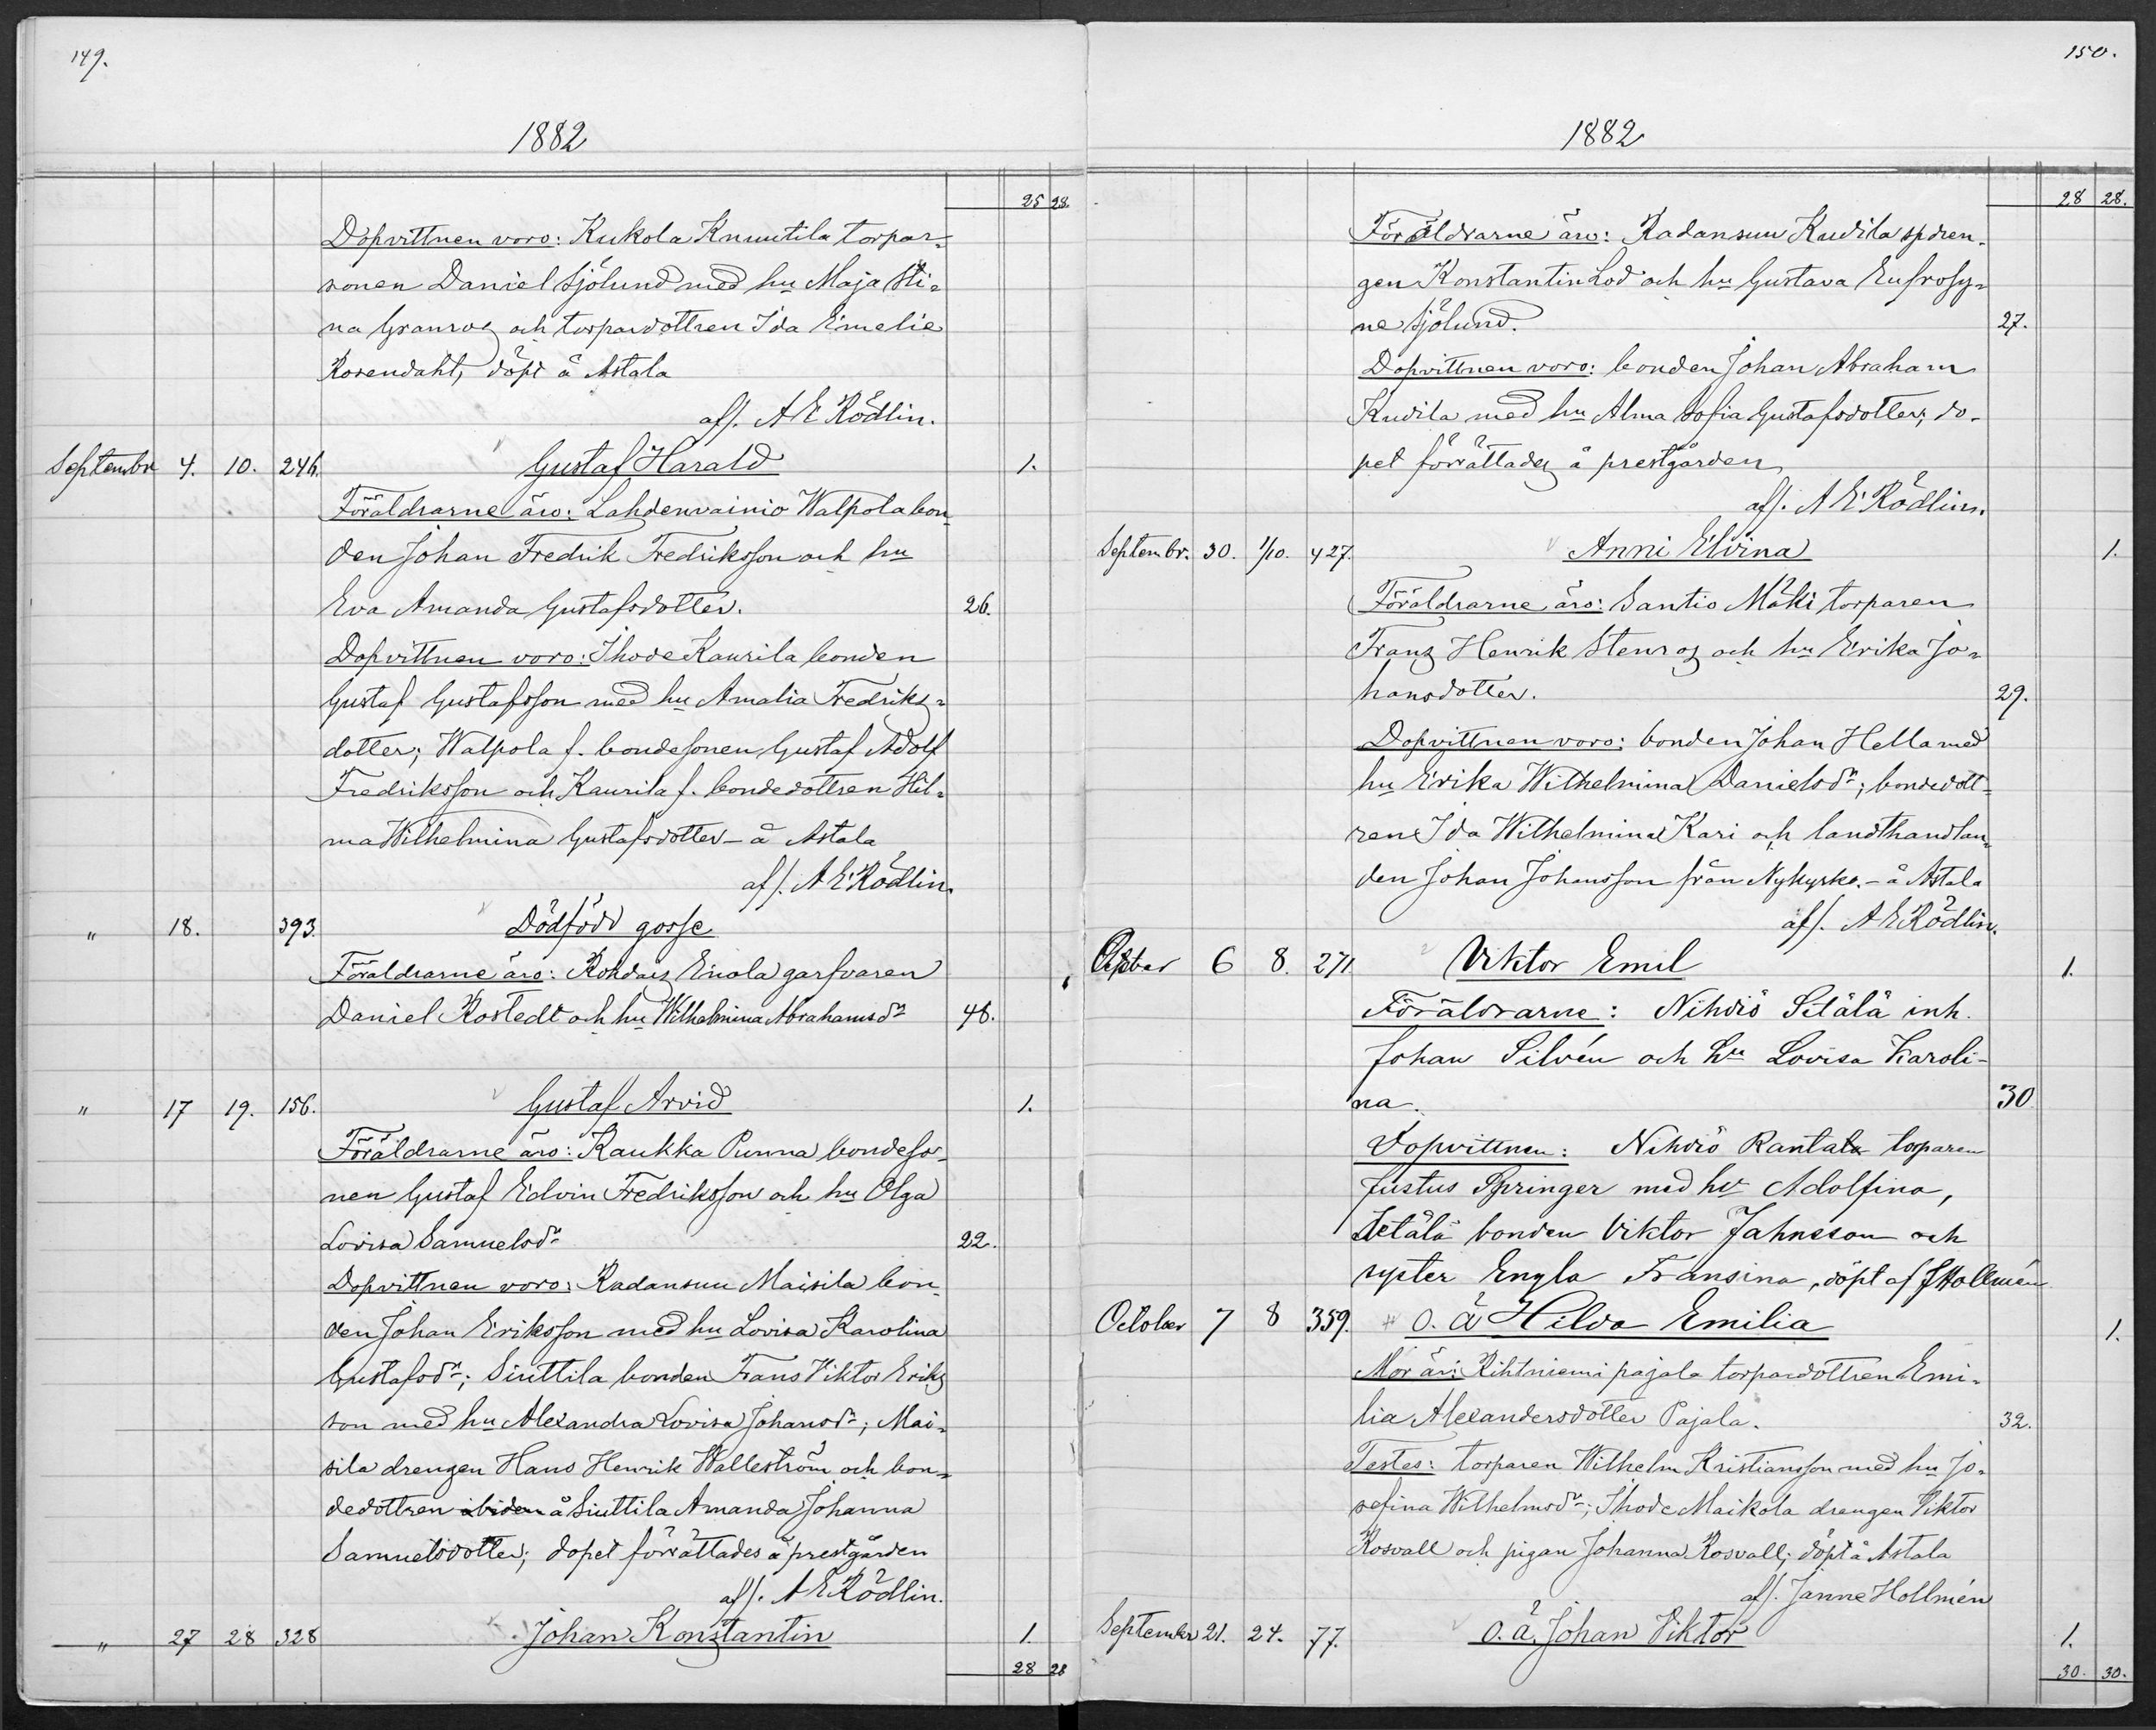 149.
1882
25 28.
Dopvittnen voro: Kukola Knuutila torpar-
sonen Daniel Sjölund med hu Maja Sti-
na Granroos och torpardottren Ida Emelie
Rosendahl, döpt å Astala
aff. A E Rödlin.
Septembr 4. 10. 246. Gustaf Harald 1.
Föräldrarne äro: Lahdenvainio Walpola bon-
den Johan Fredrik Fredriksson och hu
Eva Amanda Gustafsdotter. 26.
Dopvittnen voro: Ihode Kaurila bonden
Gustaf Gustafsson med hu Amalia Fredriks-
dotter; Walpola f. bondesonen Gustaf Adolf
Fredriksson och Kaurila f. bondedottren Hil-
ma Wilhelmina Gustafsdotter - å Astala
aff. A E Rödlin.
" 18. 393. Dödfödd gosse
Föräldrarne äro: Kohdais Einola garfvaren
Daniel Rostedt och hu Wilhelmina Abrahamsdr 48.
" 17 19. 156. Gustaf Arvid 1.
Föräldrarne äro: Kaukka Punna bondeso-
nen Gustaf Edvin Fredriksson och hu Olga
Lovisa Samuelsdr 22.
Dopvittnen voro: Radansuu Maisila bon-
den Johan Eriksson med hu Lovisa Karolina
Gustafsdr; Siuttila bonden Frans Viktor Eriks
son med hu Alexandra Lovisa Johansdr; Mai-
sila drengen Hans Henrik Walleström och bon-
dedottren ibidem å Siuttila Amanda Johanna
Samuelsdotter; dopet förrättades å prestgården
aff. A E Rödlin.
" 27 28 328 Johan Konstantin 1.
28 28
150.
1882
28 28.
Föräldrarne äro: Radansuu Kudila spdren-
gen Konstantin Lod och hu Gustava Eufrosy-
ne Sjölund. 27.
Dopvittnen voro: bonden Johan Abraham
Kudila med hu Alma Sofia Gustafsdotter, do-
pet förrättades å prestgården
aff. A E Rödlin.
Septembr. 30. 1/10. 427. Anni Elvina 1.
Föräldrarne äro: Santio Mäki torparen
Franz Henrik Stenros och hu Erika Jo-
hansdotter. 29.
Dopvittnen voro: bonden Johan Hella med
hu Erika Wilhelmina Danielsdr; bondedott-
ren Ida Wilhelmina Kari och landthandlan-
den Johan Johansson från Nykyrko. - å Astala
aff. A E Rödlin.
Oktober 6 8. 271 Viktor Emil 1.
Föräldrarne: Nihdiö Sitälä inh.
Johan Silvén och hu Lovisa Karoli-
na. 30
Dopvittnen: Nihdiö Rantala torparen
Justus Springer med hu Adolfina,
Setälä bonden Viktor Jahnsson och
syster Engla Fransina, döpt af J Hollmén
October 7 8 359. O. ä Hilda Emilia 1.
Mor är: Rihtniemi pajala torpardottren Emi-
lia Alexandersdotter Pajala. 32.
Testes: torparen Wilhelm Kristiansson med hu Jo-
sefina Wilhelmsdr; Ihode Maikola drengen Viktor
Rosvall och pigan Johanna Rosvall; döpt å Astala
aff. Janne Hollmén
September 21. 24. 77. O. ä. Johan Viktor 1.
30. 30.